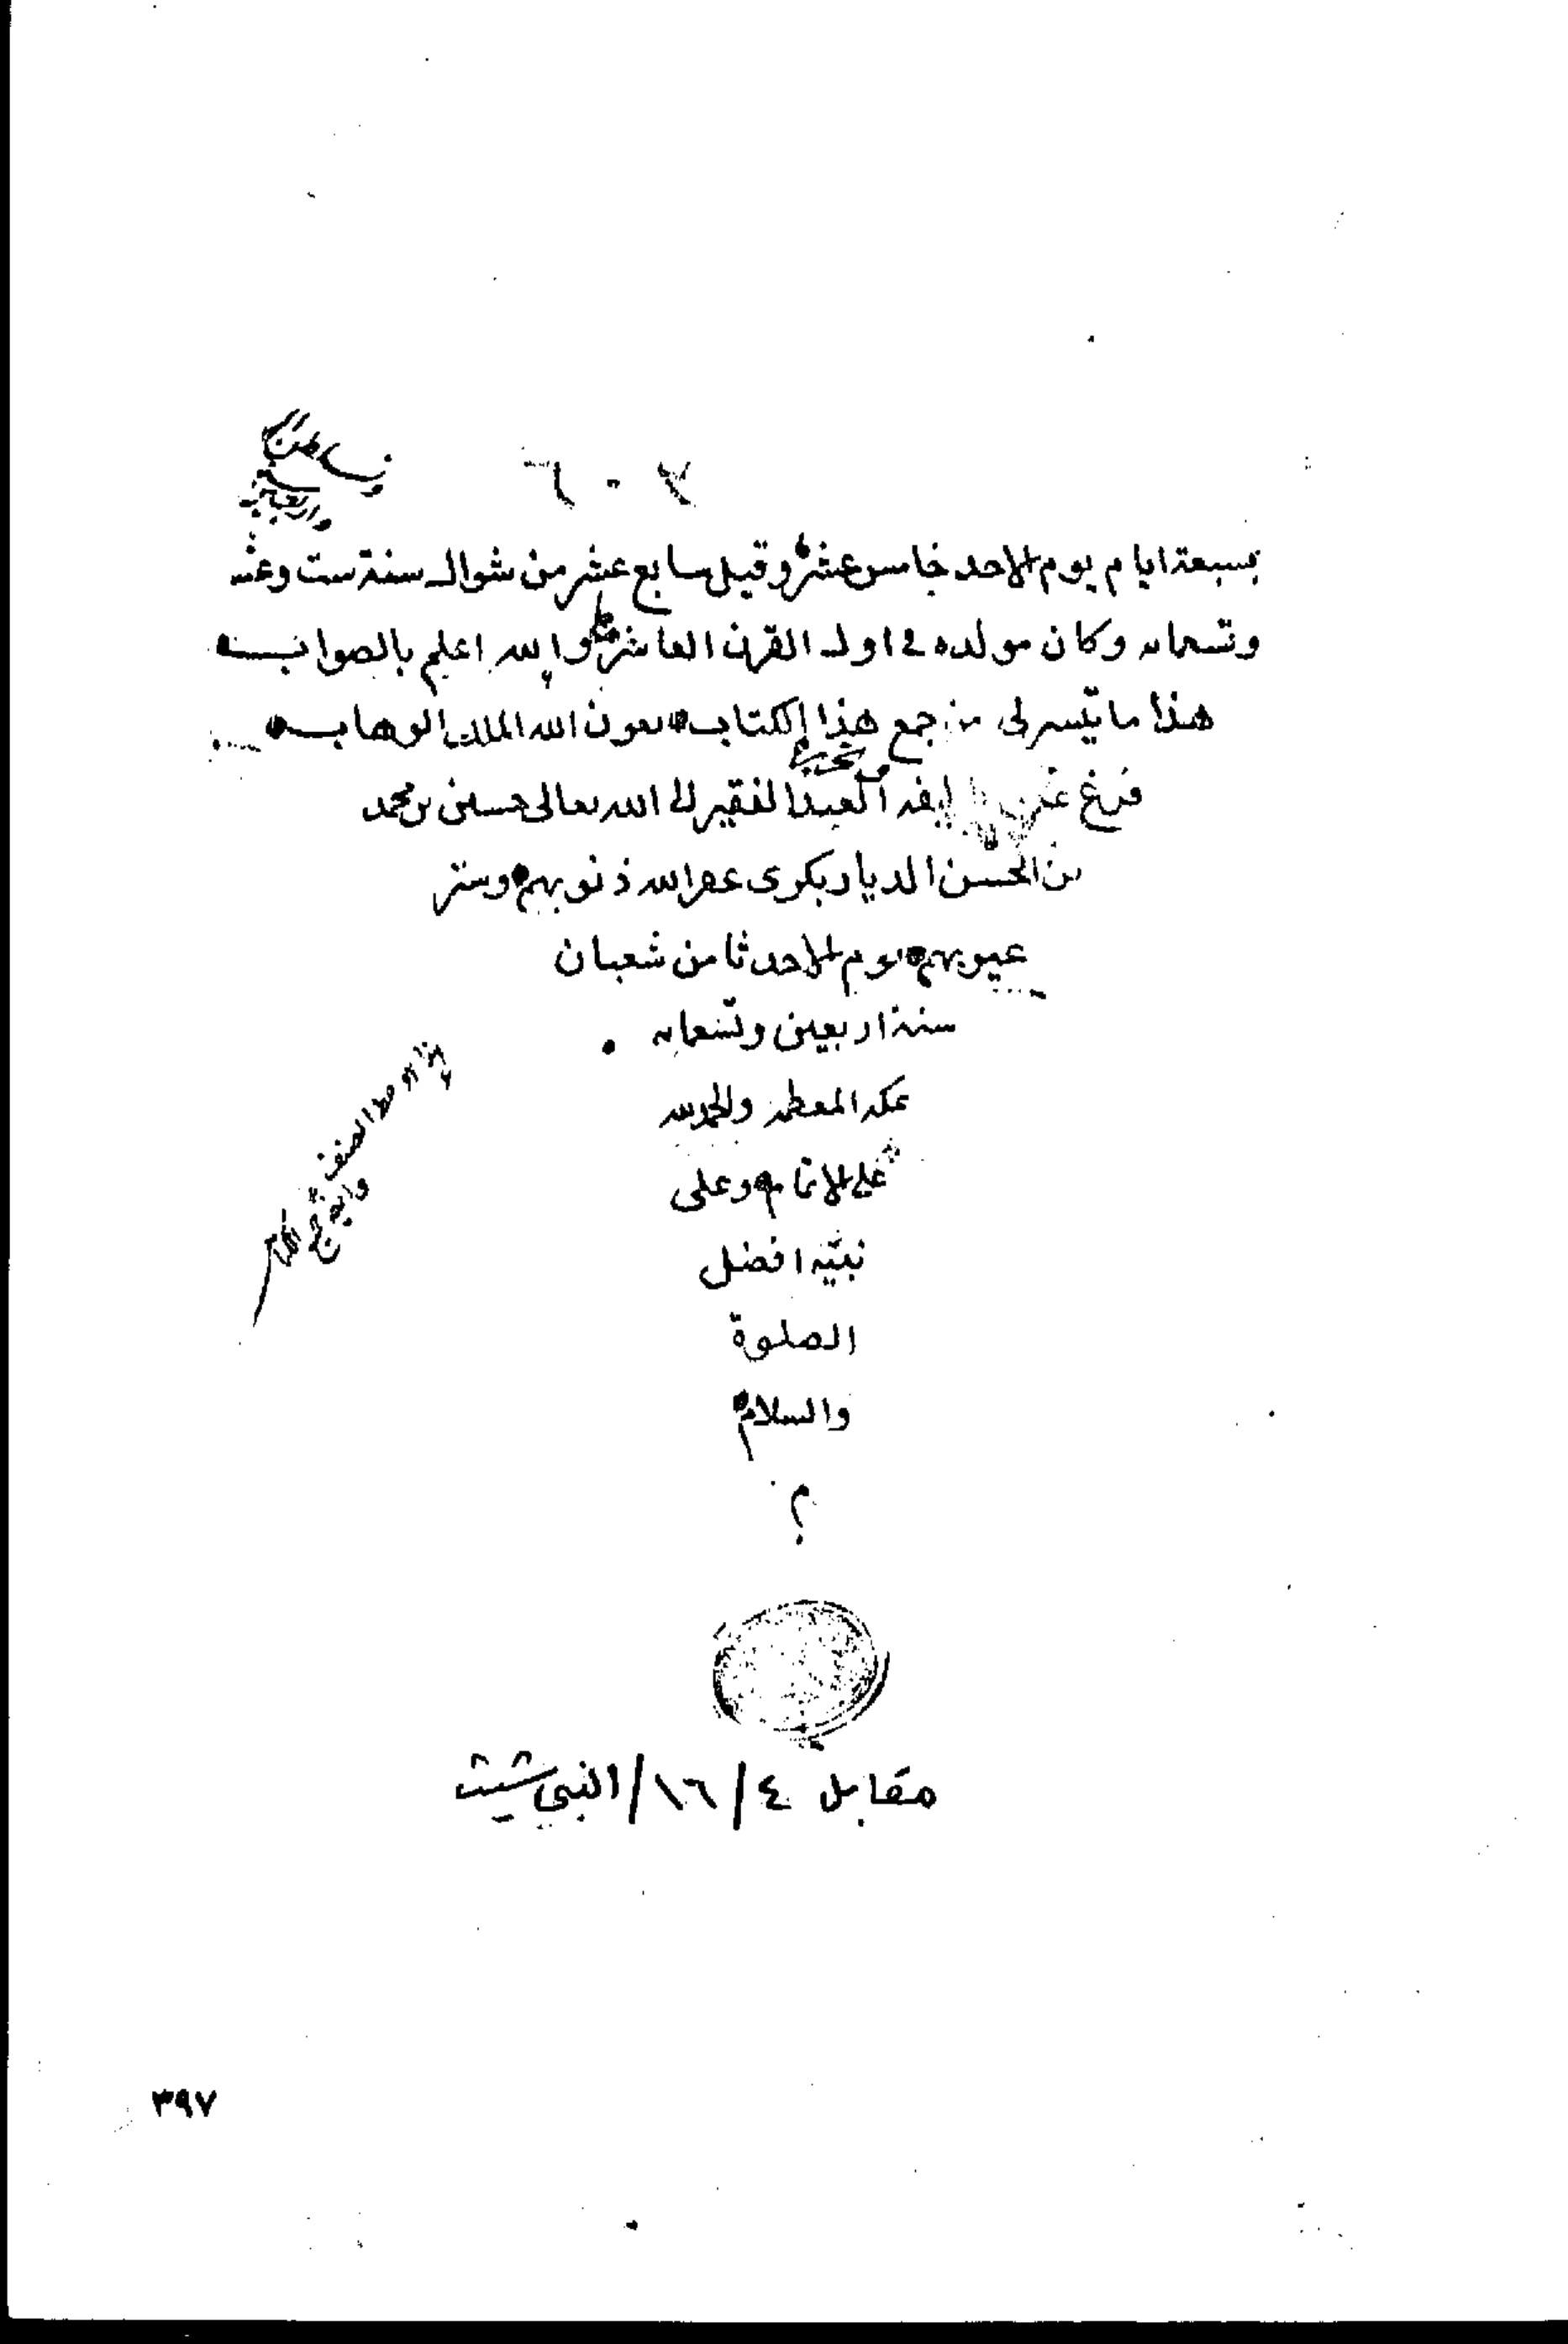 ٣٠٦
بسبعة ايام يوم الاحد خامس عشر وقيل سابع عشر من شوال سنة ست وعشر
وتسعمايه وكان مولده في اول القرن العاشر والله اعلم بالصواب
هذا ما تيسر لى من جمع هذا الكتاب بعون الله الملك الوهاب
فرغ من تحريره العبد الفقير الى الله تعالى حسين بن محمد
بن الحسن الدياربكرى غفر الله ذنوبهم وستر
عيوبهم يوم الاحد ثامن شعبان
سنة اربعين وتسعمايه
بمكة المعظمه والحمد لله
على الاتمام وعلى
نبيه افضل
الصلوة
والسلام
م
مقابل ٤/١٦/النبي شيت
٣٩٧